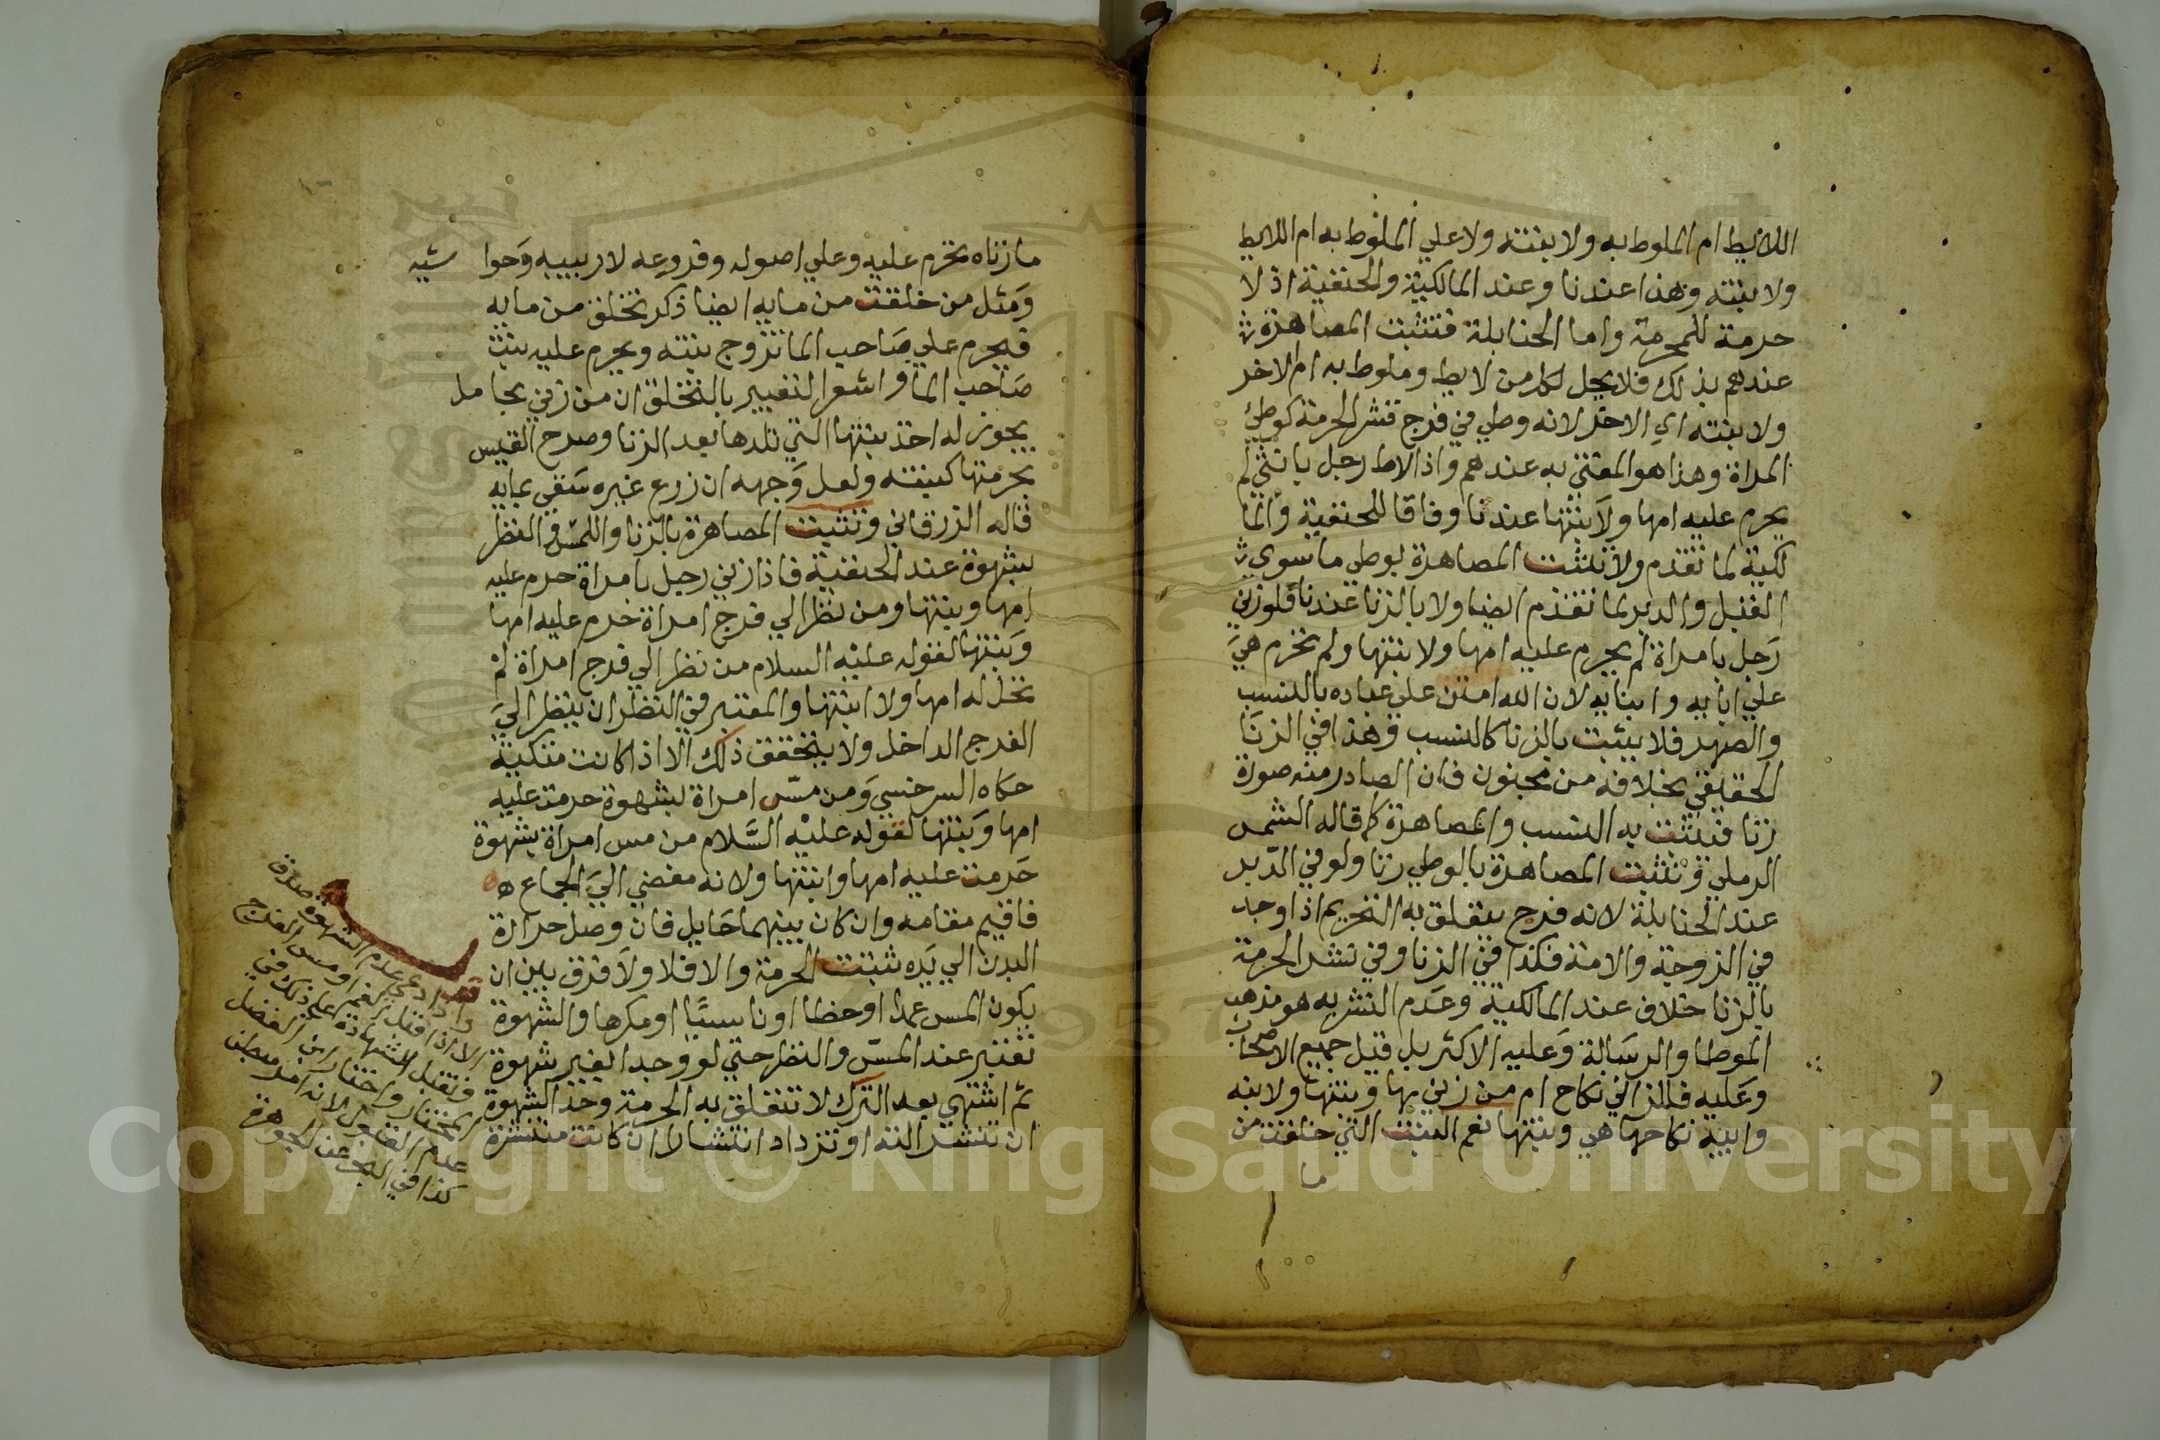 اللايط ام الملوط به ولا بنته ولا علي الملوط به ام اللايط
ولا بنته وهذا عندنا وعند المالكية والحنفية اذ لا
حرمة للمحرمة واما الحنابلة فتثبت المصاهرة
عندهم بذلك فلا يحل لكل من لايط وملوط به ام الاخر
ولا بنته اي الاخر لانه وطي في فرج فنشر الحرمة كوطئ
المراة وهذا هو المفتي به عندهم واذا لاط رجل بانثي لم
يحرم عليه امها ولا بنتها عندنا وفاقا للحنفية والما
لكية لما تقدم ولا تثبت المصاهرة بوطي ما سوي
القبل والدبر لما تقدم ايضا ولا بالزنا عندنا فلو زني
رجل بامراة لم يحرم عليه امها ولا بنتها ولم تحرم هي
علي ابايه وابنايه لان الله امتن علي عباده بالنسب
والصهر فلا يثبت بالزنا كالنسب وهذا في الزنا
الحقيقي بخلافه من مجنون فان الصادر منه صورة
زنا فيثبت به النسب والمصاهرة كما قاله الشمس
الرملي وتثبت المصاهرة بالوطي زنا ولو في الدبر
عند الحنابلة لانه فرج يتعلق به التحريم اذا وجد
في الزوجة والامة فكذا في الزنا وفي نشر الحرمة
بالزنا خلاف عند المالكية وعدم النشر به هو مذهب
الموطا والرسالة وعليه الاكثر بل قيل جميع الاصحاب
وعليه فللزاني نكاح ام من زني بها وبنتها ولابنه
وابيه نكاحها هي وبنتها نعم البنت التي خلقت من
ما
مازناه تحرم عليه وعلي اصوله وفروعه لا ربيبه وحوا شيه
ومثل من خلقت من مايه ايضا ذكر تخلق من مايه
فيحرم علي صاحب الما تزوج بنته ويحرم عليه بنت
صاحب الما واشعر التعبير بالتخلق ان من زني بحامل
يجوز له اخذ بنتها التي تلدها بعد الزنا وصرح القيس
بحرمتها كبنته ولعل وجهه ان زرع غيره سقي بمايه
قاله الزرقاني وتثبت المصاهرة بالزنا واللمس والنظر
بشهوة عند الحنفية فاذا زني رجل بامراة حرم عليه
امها وبنتها ومن نظر الي فرج امراة حرم عليه امها
وبنتها لقوله عليه السلام من نظر الي فرج امراة لم
تحل له امها ولا ابنتها والمعتبر في النظر ان ينظر الي
الفرج الداخل ولا يتحقق ذلك الا اذا كانت متكية
حكاه السرخسي ومن مس امراة بشهوة حرمت عليه
امها وبنتها لقوله عليه السلام من مس امراة بشهوة
حرمت عليه امها وابنتها ولانه مفضي الي الجماع
فاقيم مقامه وان كان بينهما حايل فان وصل حرارة
البدن الي يده ثبتت الحرمة والا فلا ولا فرق بين ان
يكون المس عمدا او خطا او ناسيا او مكرها والشهوة
تعتبر عند المس والنظر حتي لو وجدا بغير شهوة
ثم اشتهي بعد الترك لا تتعلق به الحرمة وحد الشهوة
ان تنتشر الته او تزداد انتشارا ان كانت منتشرة
واذا ادعي عدم الشهوة صدق
الا اذا او مس الفرج
وتقبل الشهادة علي ذلك في
المختار واختار ابن الفضل
عدم القبول لانه امر مبطن
كذا في عن الجوهرة